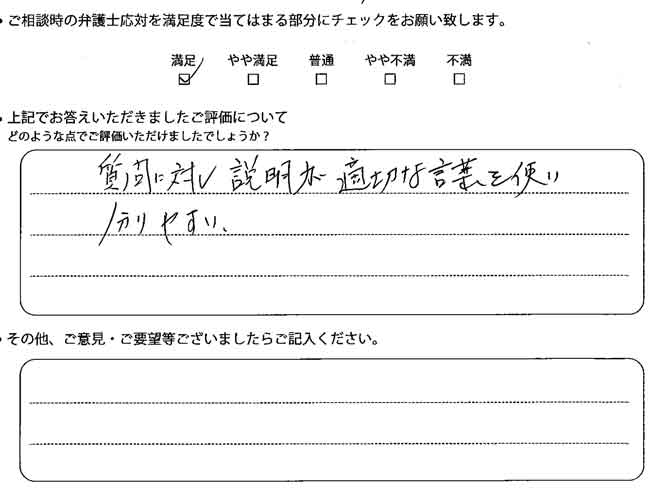 ・ご相談時の弁護士応対を満足度で当てはまる部分にチェックをお願い致します。
満足 やや満足 普通 やや不満 不満
☑ ☐ ☐ ☐ ☐
・上記でお答えいただきましたご評価について
どのような点でご評価いただけましたでしょうか？
質問に対し説明が適切な言葉を使い
分りやすい、
・その他、ご意見・ご要望等ございましたらご記入ください。